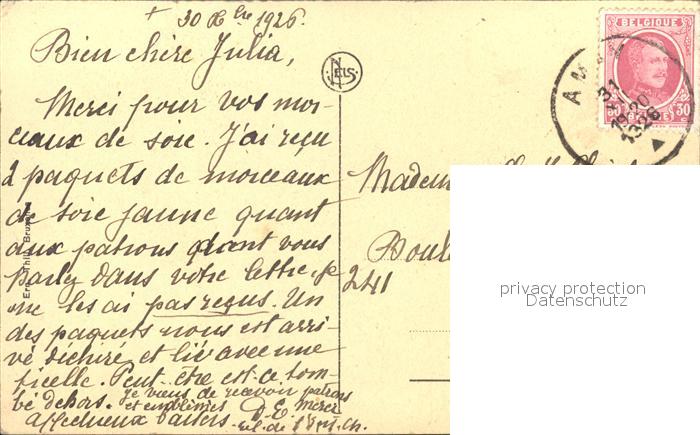 + 30 Xbre 1926.
Bien chère Julia,
Merci pour vos mor-
ceaux de soie. J'ai reçu
2 paquets de morceaux
de soie jaune quant
aux patrons dont vous
parlez dans votre lettre, je
ne les ai pas reçus. Un
des paquets nous est arri-
vé déchiré et lié avec une
ficelle. Peut-être est-ce tom-
bé dehors. Je viens de recevoir patrons
et emblèmes D. E. Merci
Affectueux baisers
NELS
Ern. Thill, Bruxelles
BELGIQUE
30 30
31
19-20
1926
Madem
Boule
241
privacy protection
Datenschutz